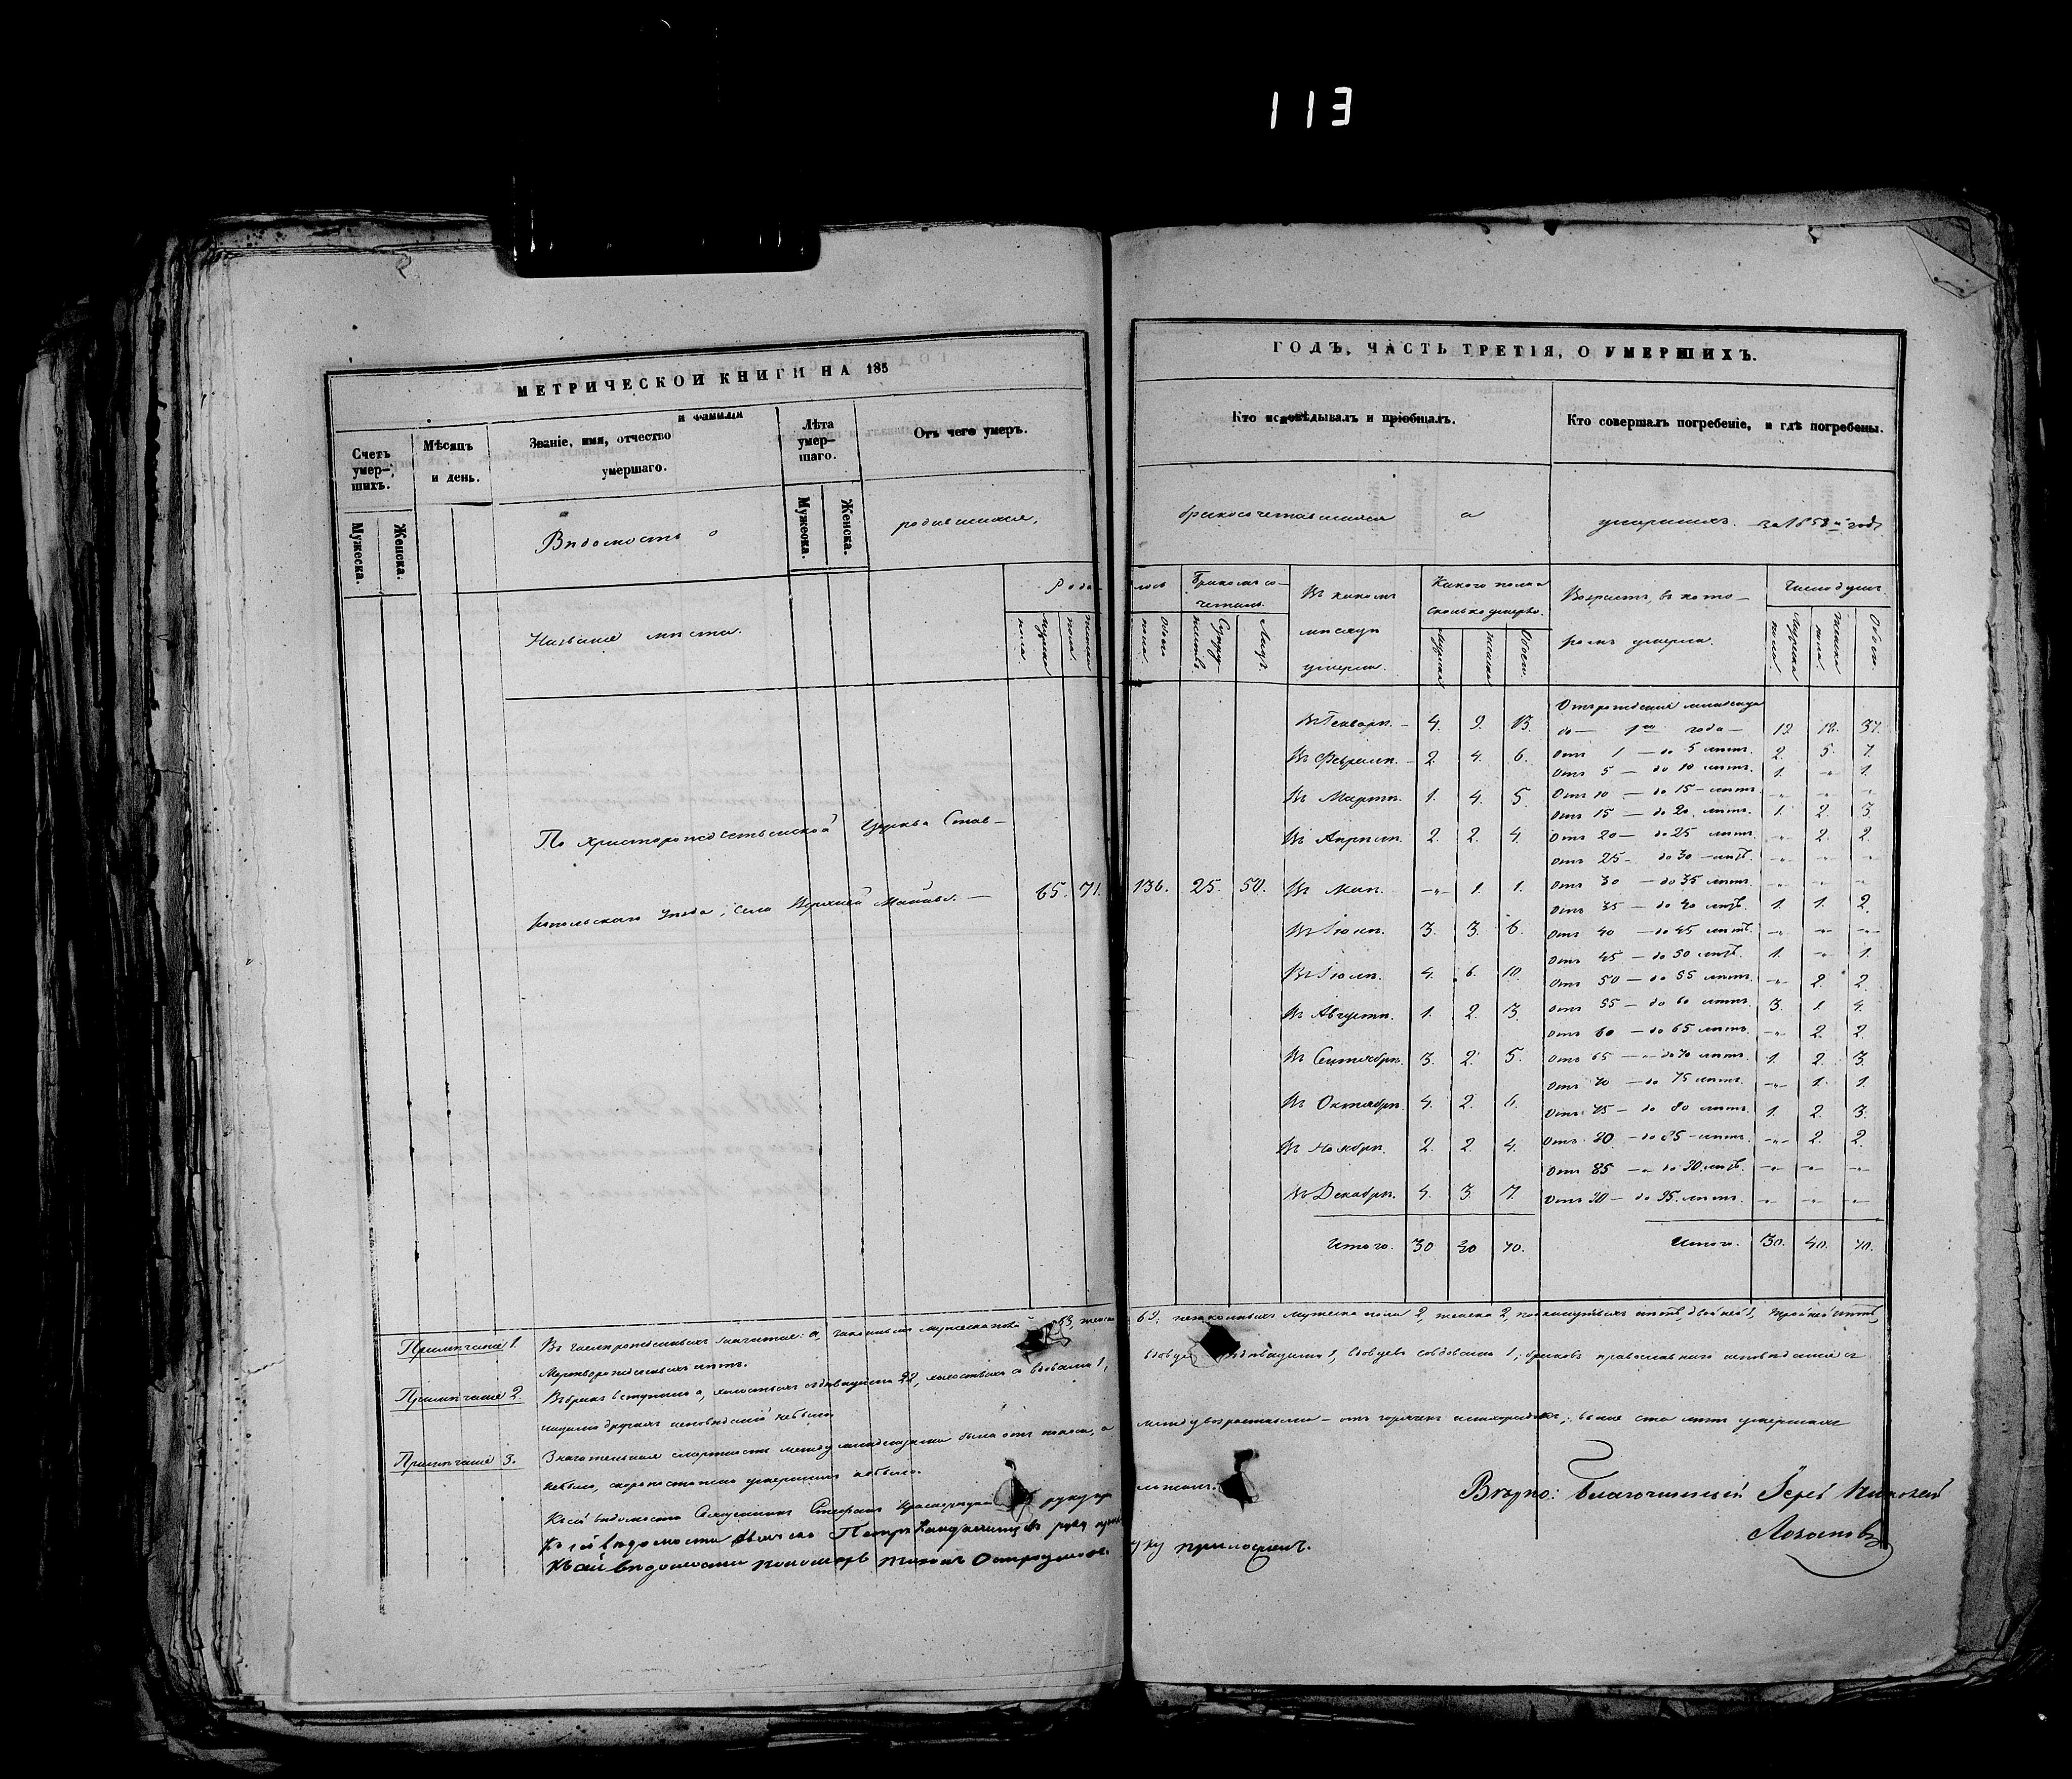 113
МЕТРИЧЕСКОЙ КНИГИ НА 185
Счетъ умер-шихъ.
Мужеска.
Женска.
Мѣсяцъ и день.
Званіе, имя, отчество и фамилія умершаго.
Лѣта умер-шаго.
Мужеска.
Женска.
Отъ чего умеръ.
Вѣдомость о родившихся,
Названіе мѣста.
Роди
мужеска пола.
женска пола.
По Христорождественской Церкви Став-
ропольскаго уѣзда, села Верхней Майны. —
65. 71.
Примѣчаніе 1. Въ числѣ рожденныхъ значится: а, законныхъ мужеска пола 63, женска
Мертворожденныхъ нѣтъ.
Примѣчаніе 2. Въ бракъ вступило а, холостыхъ съ дѣвицами 22, холостыхъ со вдовами 1,
лицами другихъ исповѣданій не было.
Примѣчаніе 3. Значительная смертность между младенцами была отъ поноса, а
не было, скоропостижно умершихъ не было.
Къ сей вѣдомости Священникъ руку пр
Къ сей вѣдомости Дьячекъ Петръ руку
Къ сей вѣдомости пономарь
ГОДЪ, ЧАСТЬ ТРЕТІЯ, О УМЕРШИХЪ.
Кто исповѣдывалъ и пріобщалъ.
Кто совершалъ погребеніе, и гдѣ погребены.
бракосочетавшихся и умершихъ за 1858й годъ
лось
Обоего пола.
Бракомъ со-четали.
Супружествъ.
Лицъ.
Въ какомъ мѣсяцѣ умерли.
Какого пола и сколько умерло.
мужска
женска
Обоего.
Возрастъ, въ кото-ромъ умерли.
Число душъ.
Мужска пола
Женска пола.
Обоего.
136. 25. 50.
Въ Генварѣ. — 4. 9. 13.
Въ Февралѣ. — 2. 4. 6.
Въ Мартѣ. 1. 4. 5.
Въ Апрѣлѣ. 2. 2. 4.
Въ Маѣ. —„— 1. 1.
Въ Іюнѣ. 3. 3. 6.
Въ Іюлѣ. 4. 6. 10.
Въ Августѣ. 1. 2. 3.
Въ Сентябрѣ. 3. 2. 5.
Въ Октябрѣ. 4. 2. 6.
Въ Ноябрѣ. 2. 2. 4.
Въ Декабрѣ. 4. 3. 7.
Итого. 30 40 70.
Отъ рожденія младенца
до — 1го года — 19 18. 37.
Отъ 1 — до 5 лѣтъ. 2. 5. 7.
Отъ 5 — до 10 лѣтъ. 1. —„— 1.
Отъ 10 — до 15 — лѣтъ —„— —„— —„—
Отъ 15 — до 20. лѣтъ. 1. 2. 3.
Отъ 20 — до 25 лѣтъ. —„— 2. 2.
Отъ 25 — до 30 — лѣтъ. —„— —„— —„—
Отъ 30 — до 35 лѣтъ. —„— —„— —„—
Отъ 35 — до 40 лѣтъ. 1. 1. 2.
Отъ 40 — до 45 лѣтъ. —„— —„— —„—
Отъ 45 — до 50 лѣтъ. 1. —„— 1.
Отъ 50 — до 55 лѣтъ. —„— 2. 2.
Отъ 55 — до 60 лѣтъ. 3. 1. 4.
Отъ 60 — до 65 лѣтъ. —„— 2. 2.
Отъ 65 — до 70 лѣтъ. 1. 2. 3.
Отъ 70 — до 75 лѣтъ. —„— 1. 1.
Отъ 75 — до 80 лѣтъ. 1. 2. 3.
Отъ 80 — до 85 — лѣтъ. —„— 2. 2.
Отъ 85 — до 90. лѣтъ. —„— —„— —„—
Отъ 90 — до 95. лѣтъ. —„— —„— —„—
Итого. 30. 40. 70.
69; незаконныхъ мужеска пола 2, женска 2, подкинутыхъ нѣтъ, двойней 1, тройней нѣтъ,
вдовцевъ съ дѣвицами 1, вдовцевъ со вдовами 1; браковъ православнаго исповѣданія съ
между возрастными — отъ горячекъ и лихорадокъ; выше ста лѣтъ умершихъ
ложилъ.
уку приложилъ.
Вѣрно: Благочинный Іерей Николай